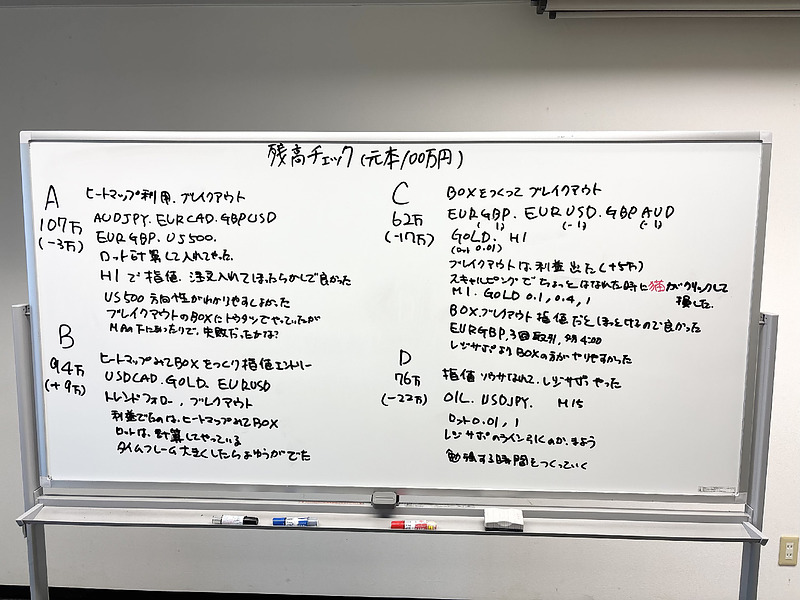 残高チェック(元本100万円)
A
107万
(-3万)
ヒートマップ利用.ブレイクアウト
AUDJPY. EURCAD. GBPUSD
EURGBP. US500.
ロット計算して入れてやった.
H1で指値.注文入れてほったらかしで良かった
US500 方向性がわかりやすくよかった
ブレイクアウトのBOXにトウタツでやっていたが
MAの下にあったりで、失敗だったかな?
B
94万
(+9万)
ヒートマップみてBOXをつくり指値エントリー
USDCAD. GOLD. EURUSD
トレンドフォロー、ブレアウト
利益でるのは、ヒートマップみてBOX
ロットは、計算してやっている
タイムフレーム大きくしたらよゆうがでた
C
62万
(-17万)
BOXをつくって ブレイクアウト
EURGBP. EURUSD. GBPAUD
( 1) (-1) (-1)
GOLD. H1
(ロット0.01)
ブレイクアウトは利益出た(+5万)
スキャルピングでちょっとはなれた時に猫がクリックして
損した.
M1. GOLD 0.1, 0.4, 1
BOX.ブレイクアウト 指値だとほっとけるので良かった
EURGBP.3回取引,
レジサポよりBOXの方がやりやすかった
D
76万
(-22万)
指値 レジサポ やった
OIL. USDJPY. M15
ロット0.01, 1
レジサポのライン引くのが、まよう
勉強する時間をつくっていく